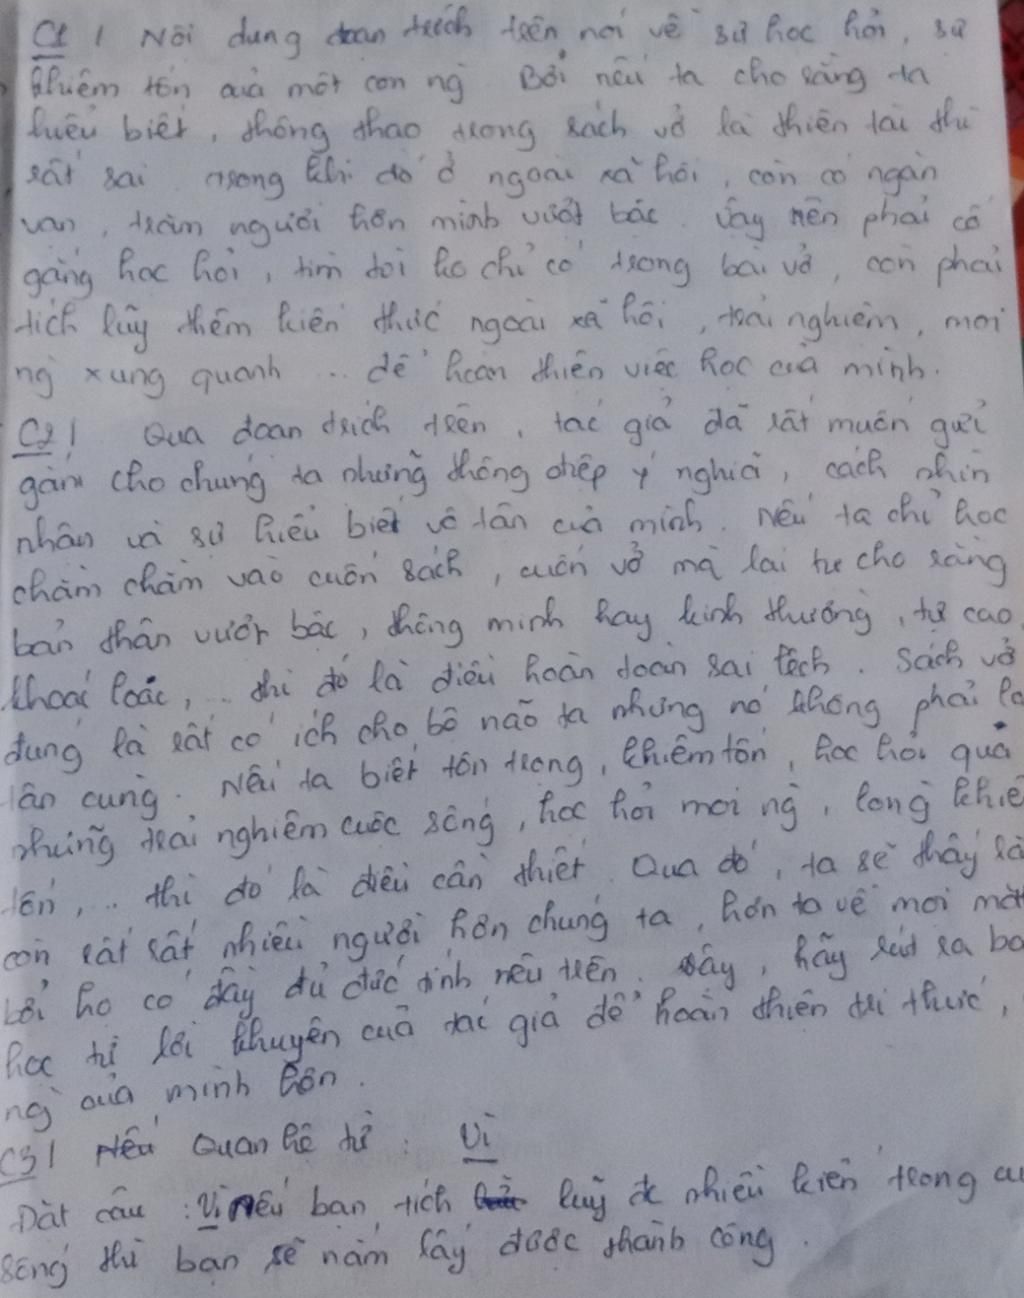 C1 / Nội dung đoạn trích trên nói về sự học hỏi, sự
khiêm tốn của một con ng Bởi nếu ta cho rằng ta
hiểu biết, thông thao trong sách vở là thiên tài thì
rất sai trong khi đó ở ngoài xã hội, còn có ngàn
vạn, trăm người hơn mình vượt bậc. Vậy nên phải cố
gắng học hỏi, tìm tòi ko chỉ có trong bài vở, còn phải
tích lũy thêm kiến thức ngoài xã hội, trải nghiệm, mọi
ng xung quanh ... để hoàn thiện việc học của mình.
C2/ Qua đoạn trích trên, tác giả đã rất muốn gửi
gắm cho chúng ta những thông điệp ý nghĩa, cách nhìn
nhận và sự hiểu biết vô tận của mình. Nếu ta chỉ học
chăm chăm vào cuốn sách, cuốn vở mà lại tự cho rằng
bản thân vượt bậc, thông minh hay kinh thường, tự cao,
khoác loác, ... thì đó là điều hoàn toàn sai lệch. Sách vở
đúng là rất có ích cho bộ não ta nhưng nó không phải là
tận cùng. Nếu ta biết tôn trọng, khiêm tốn, học hỏi qua
những trải nghiệm cuộc sống, học hỏi mọi ng, lòng khiê
tốn, ... thì đó là điều cần thiết. Qua đó, ta sẽ thấy là
còn rất rất nhiều người hơn chúng ta, hơn ta về mọi mặt
bởi họ có đầy đủ đức tính nêu trên. Vậy, hãy rút ra bà
học từ lời khuyên của tác giả để hoàn thiện tri thức,
ng của mình hơn.
C3/ Nếu Quan hệ từ: Vì
Đặt câu: Vì nếu bạn tích lũy đc nhiều kiến trong cu
sống thì bạn sẽ nắm lấy được thành công.